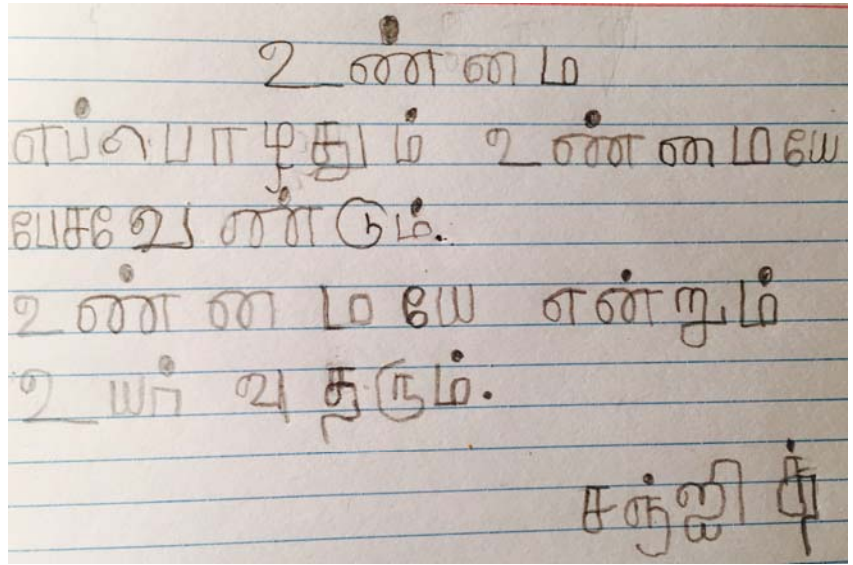 உண்மை
எப்பொழுதும் உண்மையே
பேசவேண்டும்.
உண்மையே என்றும்
உயர்வு தரும்.
சஞ்ஜித்